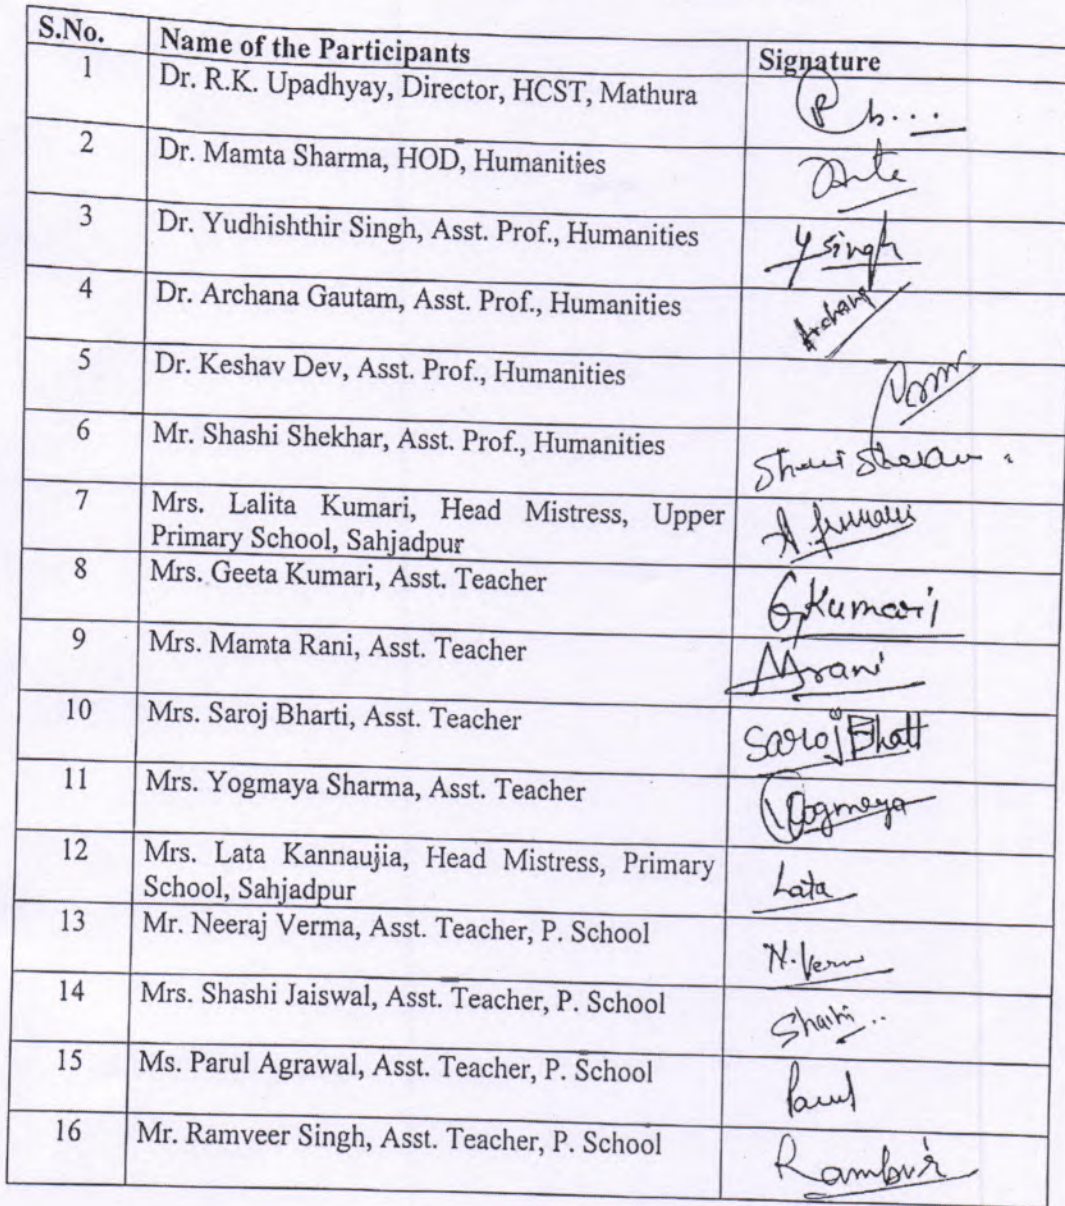 S.No. Name of the Participants Signature
1 Dr. R.K. Upadhyay, Director, HCST, Mathura
2 Dr. Mamta Sharma, HOD, Humanities
3 Dr. Yudhishthir Singh, Asst. Prof., Humanities Y Singh
4 Dr. Archana Gautam, Asst. Prof., Humanities Archana
5 Dr. Keshav Dev, Asst. Prof., Humanities
6 Mr. Shashi Shekhar, Asst. Prof., Humanities
7 Mrs. Lalita Kumari, Head Mistress, Upper
Primary School, Sahjadpur
8 Mrs. Geeta Kumari, Asst. Teacher G. Kumari
9 Mrs. Mamta Rani, Asst. Teacher Mrani
10 Mrs. Saroj Bharti, Asst. Teacher Saroj
11 Mrs. Yogmaya Sharma, Asst. Teacher Yogmaya
12 Mrs. Lata Kannaujia, Head Mistress, Primary
School, Sahjadpur Lata
13 Mr. Neeraj Verma, Asst. Teacher, P. School N. Verma
14 Mrs. Shashi Jaiswal, Asst. Teacher, P. School Shashi
15 Ms. Parul Agrawal, Asst. Teacher, P. School Parul
16 Mr. Ramveer Singh, Asst. Teacher, P. School Rambvir